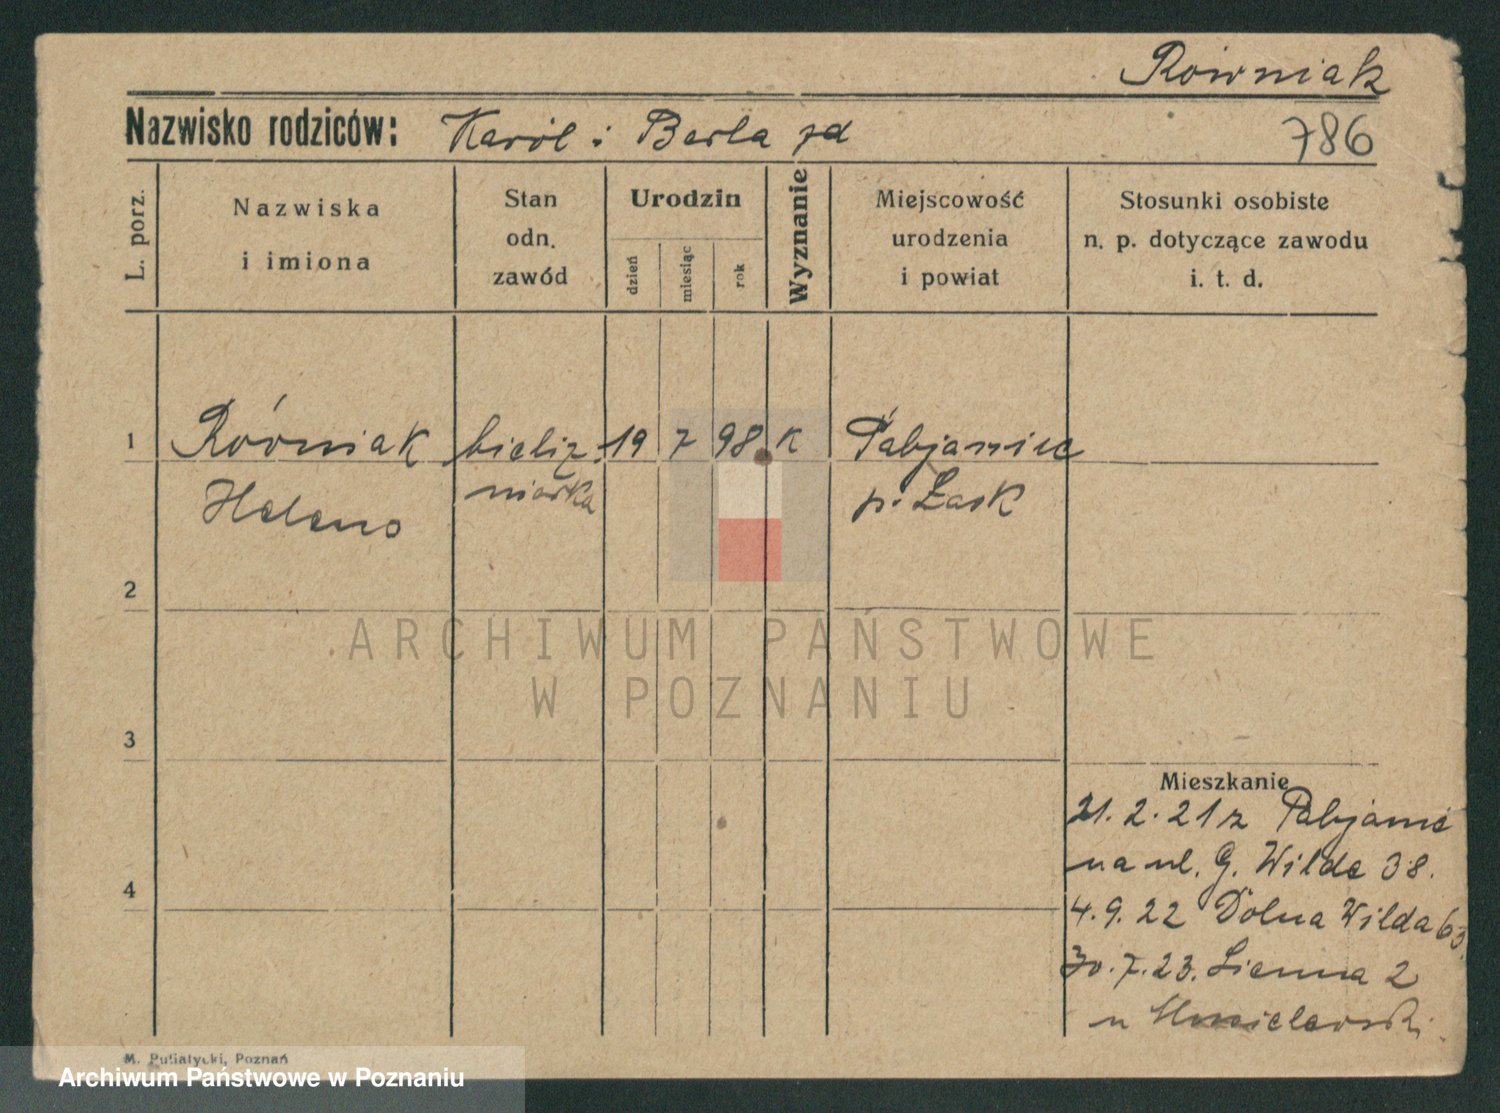 Równiak
Nazwisko rodziców: Karól i Berla zd
786
L. porz.
Nazwiska
i imiona
Stan
odn.
zawód
Urodzin
dzień
miesiąc
rok
Wyznanie
Miejscowość
urodzenia
i powiat
Stosunki osobiste
n. p. dotyczące zawodu
i. t. d.
1 Równiak bieliź 19 7 98 K Pabjanice
Helena niarka p. Łask
2
ARCHIWUM PAŃSTWOWE
W POZNANIU
3
Mieszkanie
21.2.21 z Pabjanic
na ul. G. Wilde 38.
4
4.9.22 Dolna Wilda 63
30.7.23. Sienna 2
u
M. Putiatycki, Poznań
Archiwum Państwowe w Poznaniu